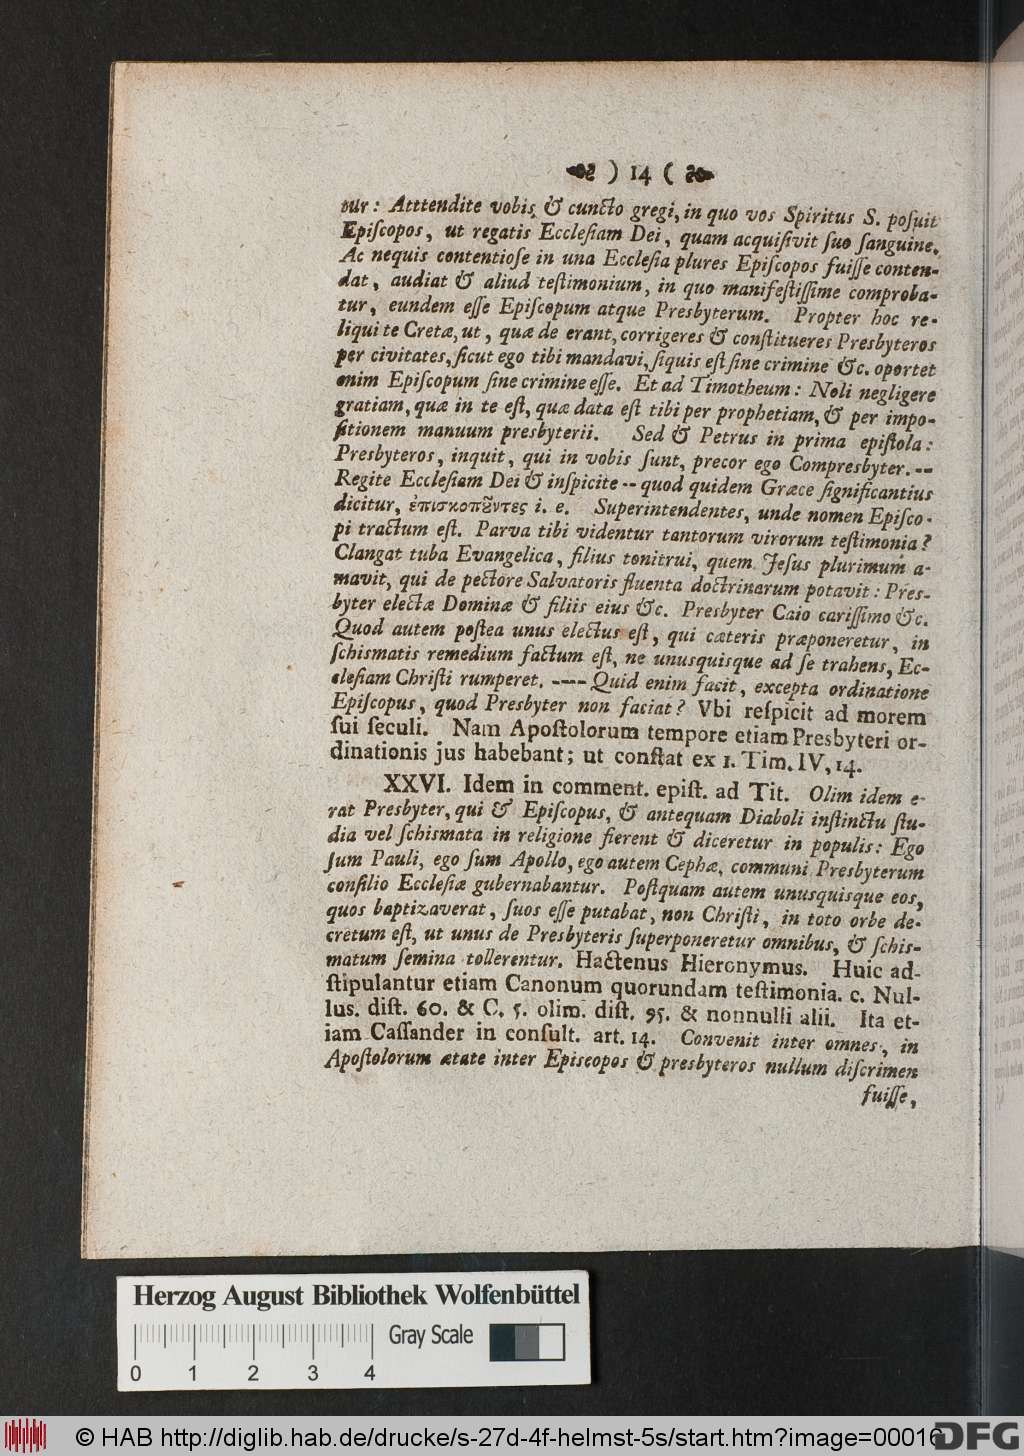 ) 14 (
tur: Atttendite vobis & cuncto gregi, in quo vos Spiritus S. posuit
Episcopos, ut regatis Ecclesiam Dei, quam acquisivit suo sanguine.
Ac nequis contentiose in una Ecclesia plures Episcopos fuisse conten-
dat, audiat & aliud testimonium, in quo manifestissime comproba-
tur, eundem esse Episcopum atque Presbyterum. Propter hoc re-
liqui te Cretæ, ut, quæ de erant, corrigeres & constitueres Presbyteros
per civitates, sicut ego tibi mandavi, siquis est sine crimine &c. oportet
enim Episcopum sine crimine esse. Et ad Timotheum: Noli negligere
gratiam, quæ in te est, quæ data est tibi per prophetiam, & per impo-
sitionem manuum presbyterii. Sed & Petrus in prima epistola:
Presbyteros, inquit, qui in vobis sunt, precor ego Compresbyter. --
Regite Ecclesiam Dei & inspicite -- quod quidem Græce significantius
dicitur, ἐπισκοποῦντες i. e. Superintendentes, unde nomen Episco-
pi tractum est. Parva tibi videntur tantorum virorum testimonia?
Clangat tuba Evangelica, filius tonitrui, quem Jesus plurimum a-
mavit, qui de pectore Salvatoris fluenta doctrinarum potavit: Pres-
byter electæ Dominæ & filiis eius &c. Presbyter Caio carissimo &c.
Quod autem postea unus electus est, qui cæteris præponeretur, in
schismatis remedium factum est, ne unusquisque ad se trahens, Ec-
clesiam Christi rumperet. ---- Quid enim facit, excepta ordinatione
Episcopus, quod Presbyter non faciat? Vbi respicit ad morem
sui seculi. Nam Apostolorum tempore etiam Presbyteri or-
dinationis jus habebant; ut constat ex 1. Tim. IV, 14.
XXVI. Idem in comment. epist. ad Tit. Olim idem e-
rat Presbyter, qui & Episcopus, & antequam Diaboli instinctu stu-
dia vel schismata in religione fierent & diceretur in populis: Ego
sum Pauli, ego sum Apollo, ego autem Cephæ, communi Presbyterum
consilio Ecclesiæ gubernabantur. Postquam autem unusquisque eos,
quos baptizaverat, suos esse putabat, non Christi, in toto orbe de-
cretum est, ut unus de Presbyteris superponeretur omnibus, & schis-
matum semina tollerentur. Hactenus Hieronymus. Huic ad-
stipulantur etiam Canonum quorundam testimonia. c. Nul-
lus. dist. 60. & C. 5. olim. dist. 95. & nonnulli alii. Ita et-
iam Cassander in consult. art. 14. Convenit inter omnes, in
Apostolorum ætate inter Episcopos & presbyteros nullum discrimen
fuisse,
Herzog August Bibliothek Wolfenbüttel
Gray Scale
0 1 2 3 4
© HAB http://diglib.hab.de/drucke/s-27d-4f-helmst-5s/start.htm?image=00016
DFG